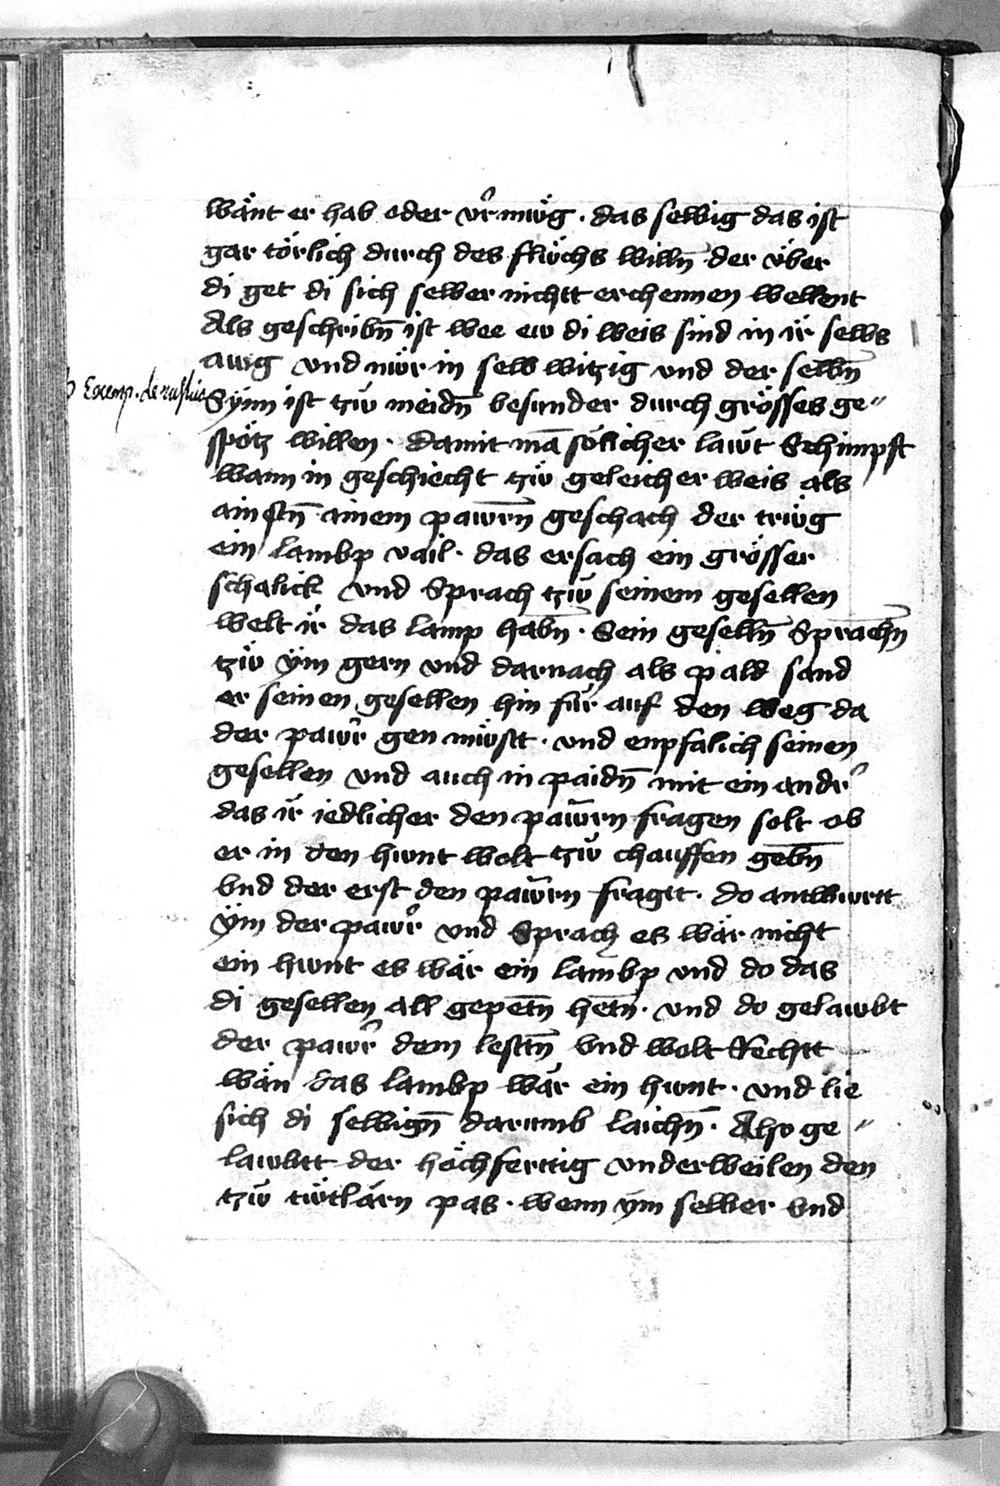 wänt er hab oder vr̃mwg · das selbig das ist
gar törlich durch des flüchs willn̄ der über
di get di sich selber nichtt erchennen wellent
Als geschribn̄ ist wee ew di weis sind in ir selbs
awg vnd nwr in selb witzig vnd der selbn̄
Exemp. de rustico
Synn ist tzw meidn̄ besunder durch grösses ge〃
spötz willen · damit mā sölicher lawt Schimpft
wann in geschiecht tzw geleicher weis als
ainstn̄ ainem pawrn̄ geschach der trwg
ein lambp vail · das ersach ein grösser
schalick vnd Sprach tzw seinem gesellen
welt ir das lamp habn̄ · Sein geselln̄ Sprachn̄
tzw ÿm gern vnd darnach als pald sand
er seinen gesellen hin für auf den weg da
der pawr̃ gen mwstt · vnd enpfalich seinen
gesellen vnd auch in paidn̄ mit ein andr̃
das ir iedlicher den pawrn̄ fragen solt ob
er in den hwnt wolt tzw chauffen gebn̄
Vnd der erst den pawrn̄ fragtt · do antbwrtt
ÿm der pawr̃ vnd Sprach es wär nicht
ein hwnt es wär ein lambp vnd do das
di gesellen all gepetn̄ hetn̄ · vnd do gelawbt
der pawr̃ dem lesttn̄ Vnd wolt Rechtt
wän das lambp wär ein hwnt · vnd lie
sich di selbign̄ darumb laichn̄ · Also ge〃
lawbtt der höchferttig vnderweilen den
tzw tütlärn pas · wenn ÿm selber Vnd